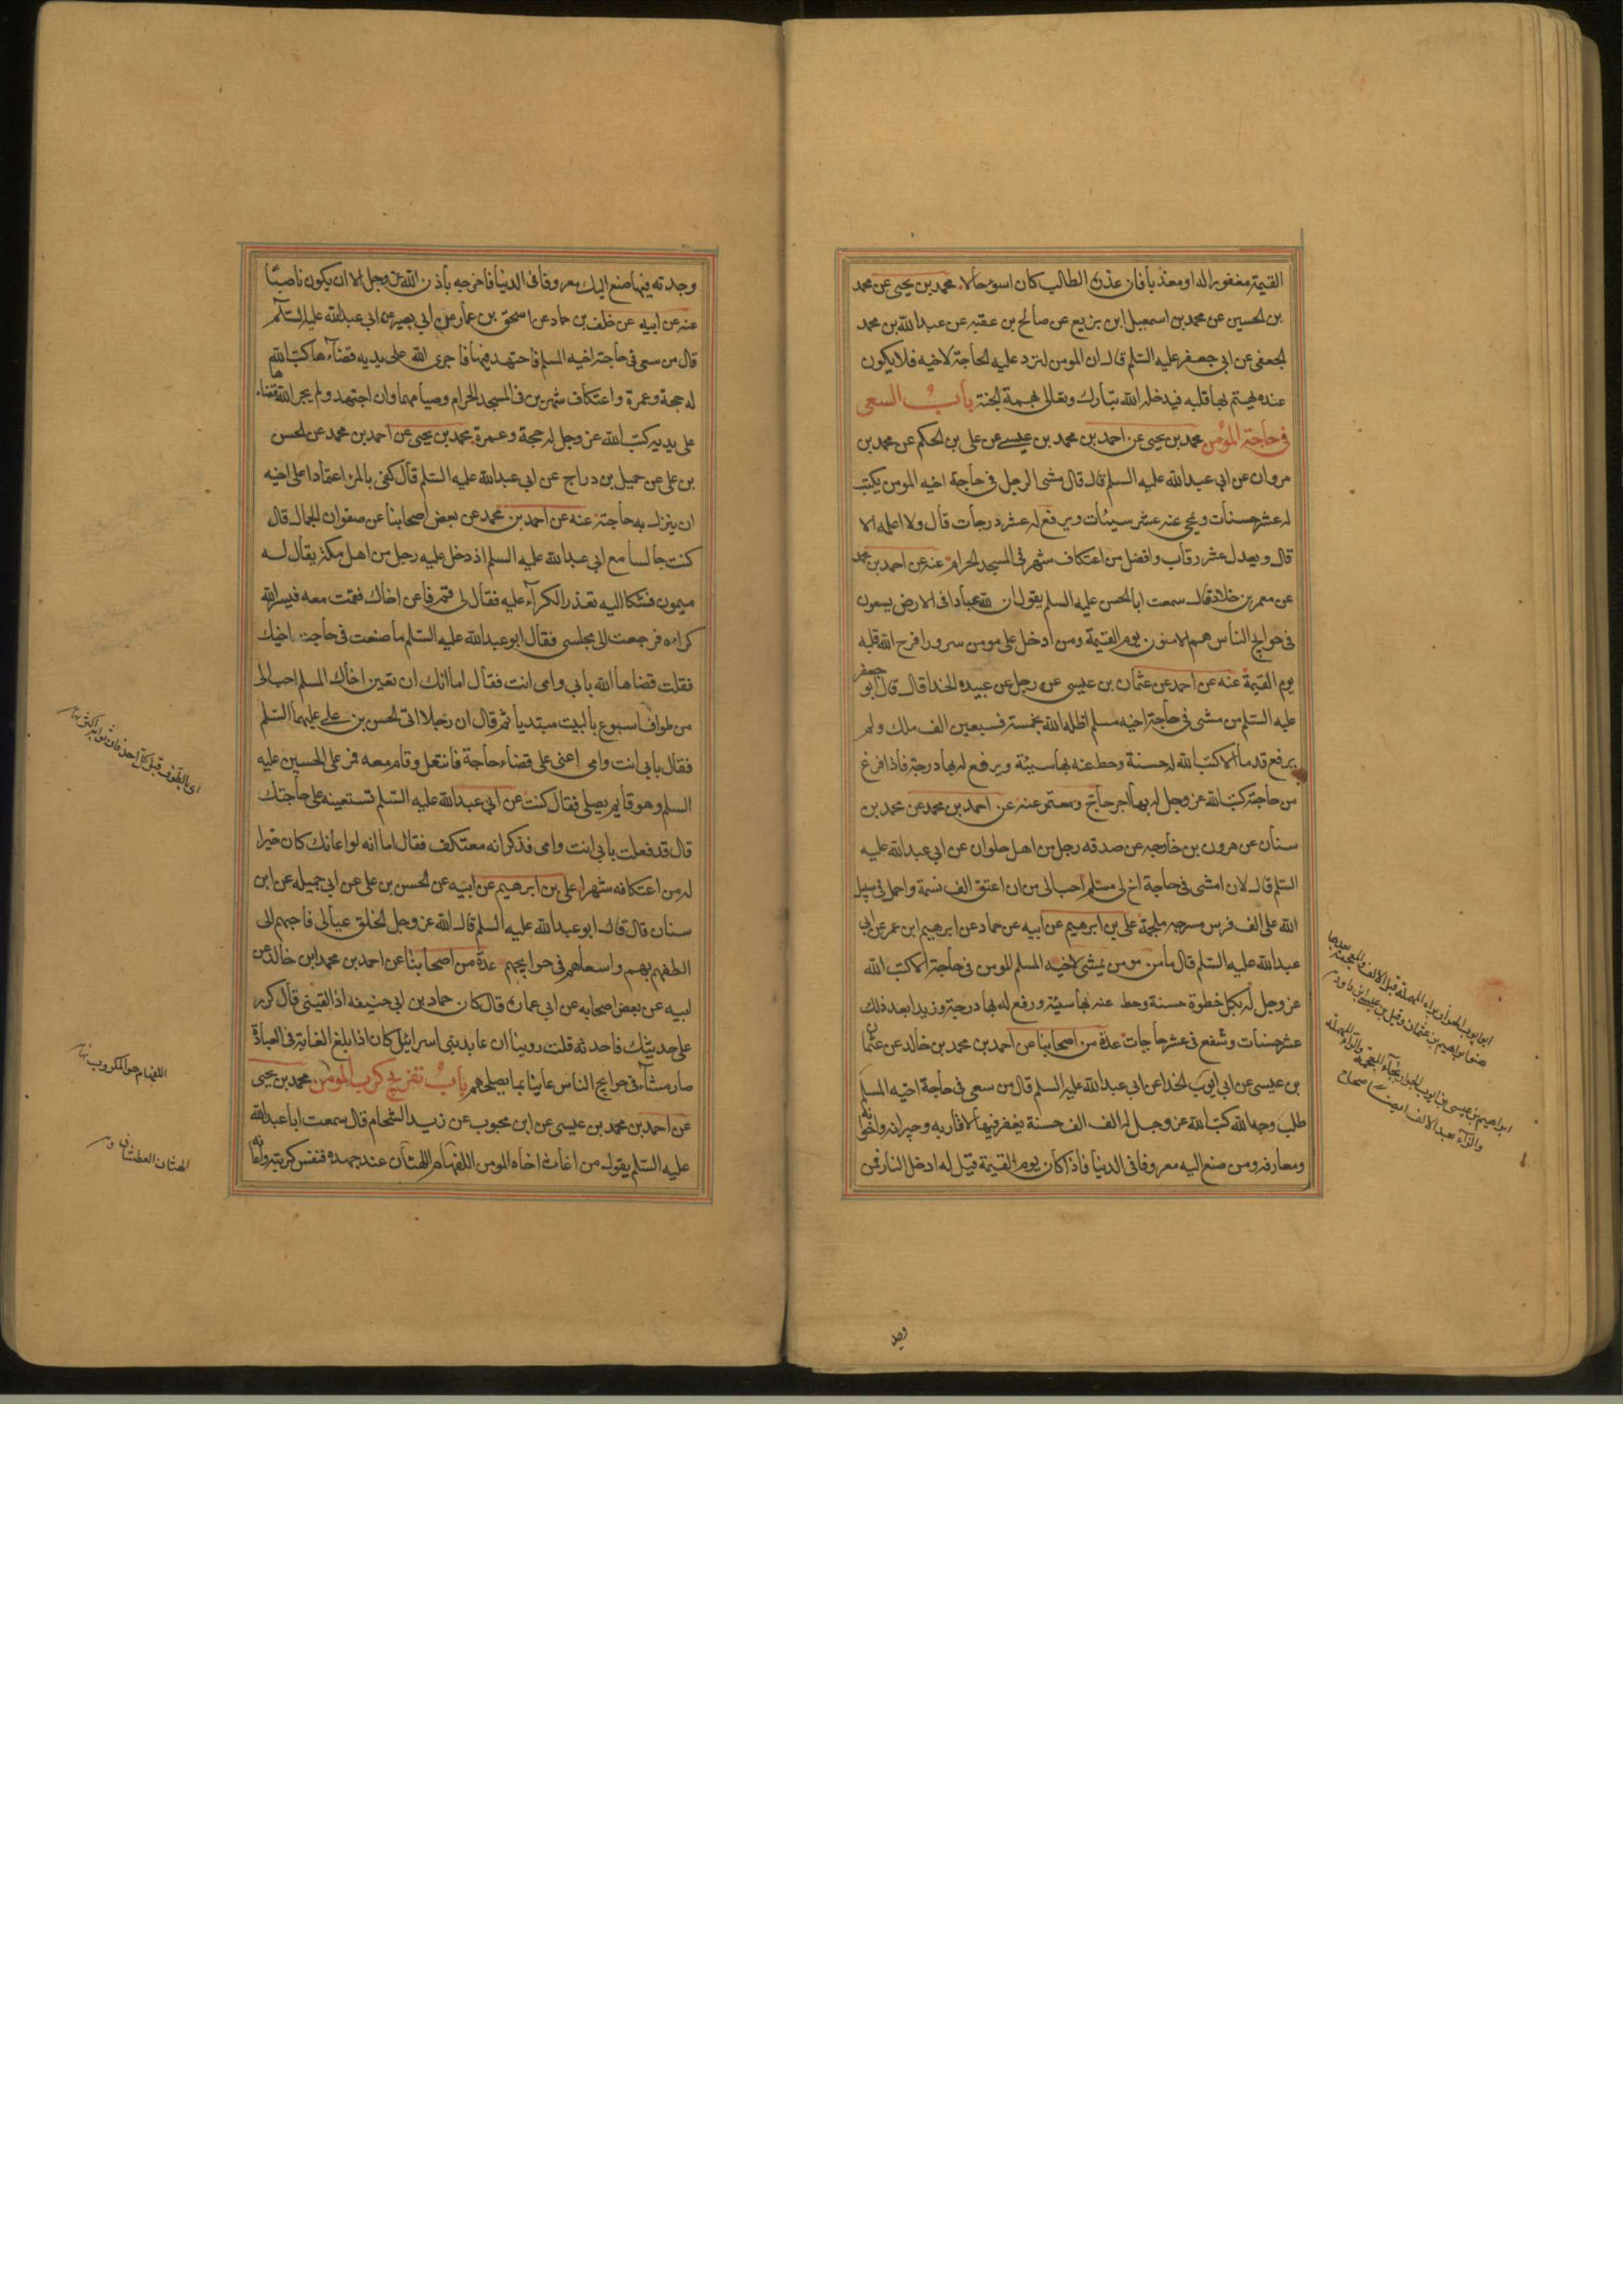 القيمة مغفورا له او معذبا فان عذره الطالب كان اسوء حالا محمد بن يحيى عن محمد
بن الحسين عن محمد بن اسمعيل ابن بزيع عن صالح بن عقبه عن عبد الله بن محمد
الجعفى عن ابى جعفر عليه السلم قال ان المومن لترد عليه الحاجة لاخيه فلا يكون
عنده فيهتم بها قلبه فيدخله الله تبارك وتعالى بهمه الجنة باب السعى
فى حاجة المومن محمد بن يحيى عن احمد بن محمد بن عيسى عن على بن الحكم عن محمد بن
مروان عن ابى عبد الله عليه السلم قال قال مشى الرجل فى حاجة اخيه المومن يكتب
له عشر حسنات ويمحى عنه عشر سيئات ويرفع له عشر درجات قال ولا اعلمه الا
قال ويعدل عشر رقاب وافضل من اعتكاف شهر فى المسجد الحرام عنه عن احمد بن محمد
عن معمر بن خلاد قال سمعت ابا الحسن عليه السلم يقول ان لله عبادا فى الارض يسعون
فى حوايج الناس هم الامنون يوم القيمة ومن ادخل على مومن سرورا فرح الله قلبه
يوم القيمة عنه عن احمد عن عثمان بن عيسى عن رجل عن عبيده الحذا قال قال ابو جعفر
عليه السلم من مشى فى حاجة اخيه مسلم اظله الله بخمسة وسبعين الف ملك ولم
يرفع قدما الا كتب الله له حسنة وحط عنه بها سيئة ويرفع له بها درجة فاذا فرغ
من حاجته كتب الله عز وجل له بها اجر حاج ومعتمر عنه عن احمد بن محمد عن محمد بن
سنان عن هرون بن خارجه عن صدقه رجل من اهل حلوان عن ابى عبد الله عليه
السلم قال لان امشى فى حاجة اخ لى مسلم احب الى من ان اعتق الف نسمة واحمل فى سبيل
الله على الف فرس مسرجه ملجمة على بن ابرهيم عن ابيه عن حماد عن ابرهيم ابن عمر عن ابى
عبد الله عليه السلم قال ما من مومن يمشى لاخيه المسلم المومن فى حاجة الا كتب الله
عز وجل له بكل خطوة حسنة وحط عنه بها سيئة ورفع له بها درجة وزيد بعد ذلك
عشر حسنات وشفع فى عشر حاجات عدة من اصحابنا عن احمد بن محمد بن خالد عن عثمان
بن عيسى عن ابى ايوب الخذا عن ابى عبد الله عليه السلم قال من سعى فى حاجة اخيه المسلم
طلب وجه الله كتب الله عز وجل له الف الف حسنة يغفر فيها لاقاربه وجيرانه واخوانه
ومعارفه ومن صنع اليه معروفا فى الدنيا فاذا كان يوم القيمة قيل له ادخل النار فمن
وجد
وجدته فيها صنع اليك معروفا فى الدنيا فاخرجه باذن الله عز وجل الا ان يكون ناصبيا
عنه عن ابيه عن خلف بن حماد عن اسحق بن عمار عن ابى بصير عن ابى عبد الله عليه السلم
قال من سعى فى حاجة اخيه المسلم فاجتهد فيها فاجرى الله على يديه قضاءها كتب الله
له حجة وعمرة واعتكاف شهرين فى المسجد الحرام وصيامهما وان اجتهد ولم يجر الله قضاءها
على يديه كتب الله عز وجل له حجة وعمرة محمد بن يحيى عن احمد بن محمد عن الحسن
بن على عن جميل بن دراج عن ابى عبد الله عليه السلم قال كفى بالمرء اعتمادا على اخيه
ان ينزل به حاجته عنه عن احمد بن محمد عن بعض اصحابنا عن صفوان الجمال قال
كنت جالسا مع ابى عبد الله عليه السلم اذ دخل عليه رجل من اهل مكة يقال له
ميمون فشكا اليه تعذر الكراء عليه فقال لى قم فاعن اخاك فقمت معه فيسر الله
كراءه فرجعت الى مجلسى فقال ابو عبد الله عليه السلم ما صنعت فى حاجة اخيك
فقلت قضاها الله بابى وامى انت فقال اما انك ان تعين اخاك المسلم احب الى
من طواف اسبوع بالبيت مبتديا ثم قال ان رجلا اتى الحسن بن على عليهما السلم
فقال بابى انت وامى اعنى على قضاء حاجة فانتعل وقام معه فمر على الحسين عليه
السلم وهو قايم يصلى فقال كنت عن ابى عبد الله عليه السلم تستعينه على حاجتك
قال قد فعلت بابى انت وامى فذكر انه معتكف فقال اما انه لو اعانك كان خيرا
له من اعتكافه شهرا على بن ابرهيم عن ابيه عن الحسن بن على عن ابى جميله عن ابن
سنان قال قال ابو عبد الله عليه السلم قال الله عز وجل الخلق عيالى فاحبهم الى
الطفهم بهم واسعاهم فى حوايجهم عدة من اصحابنا عن احمد بن محمد ابن خالد عن
ابيه عن بعض اصحابه عن ابى عماره قال كان حماد بن ابى حنيفه اذا لقينى قال كرر
على حديثك فاحدثه قلت روينا ان عابد بنى اسرائيل كان اذا بلغ الغاية فى العبادة
صار مشاء فى حوايج الناس عانيا بما يصلحهم باب تفريج كرب المومن محمد بن يحيى
عن احمد بن محمد بن عيسى عن ابن محبوب عن زيد الشحام قال سمعت ابا عبد الله
عليه السلم يقول من اغاث اخاه المومن اللهفان اللهثان عند جهده فنفس كربته واعانه
اللهثان العطشان